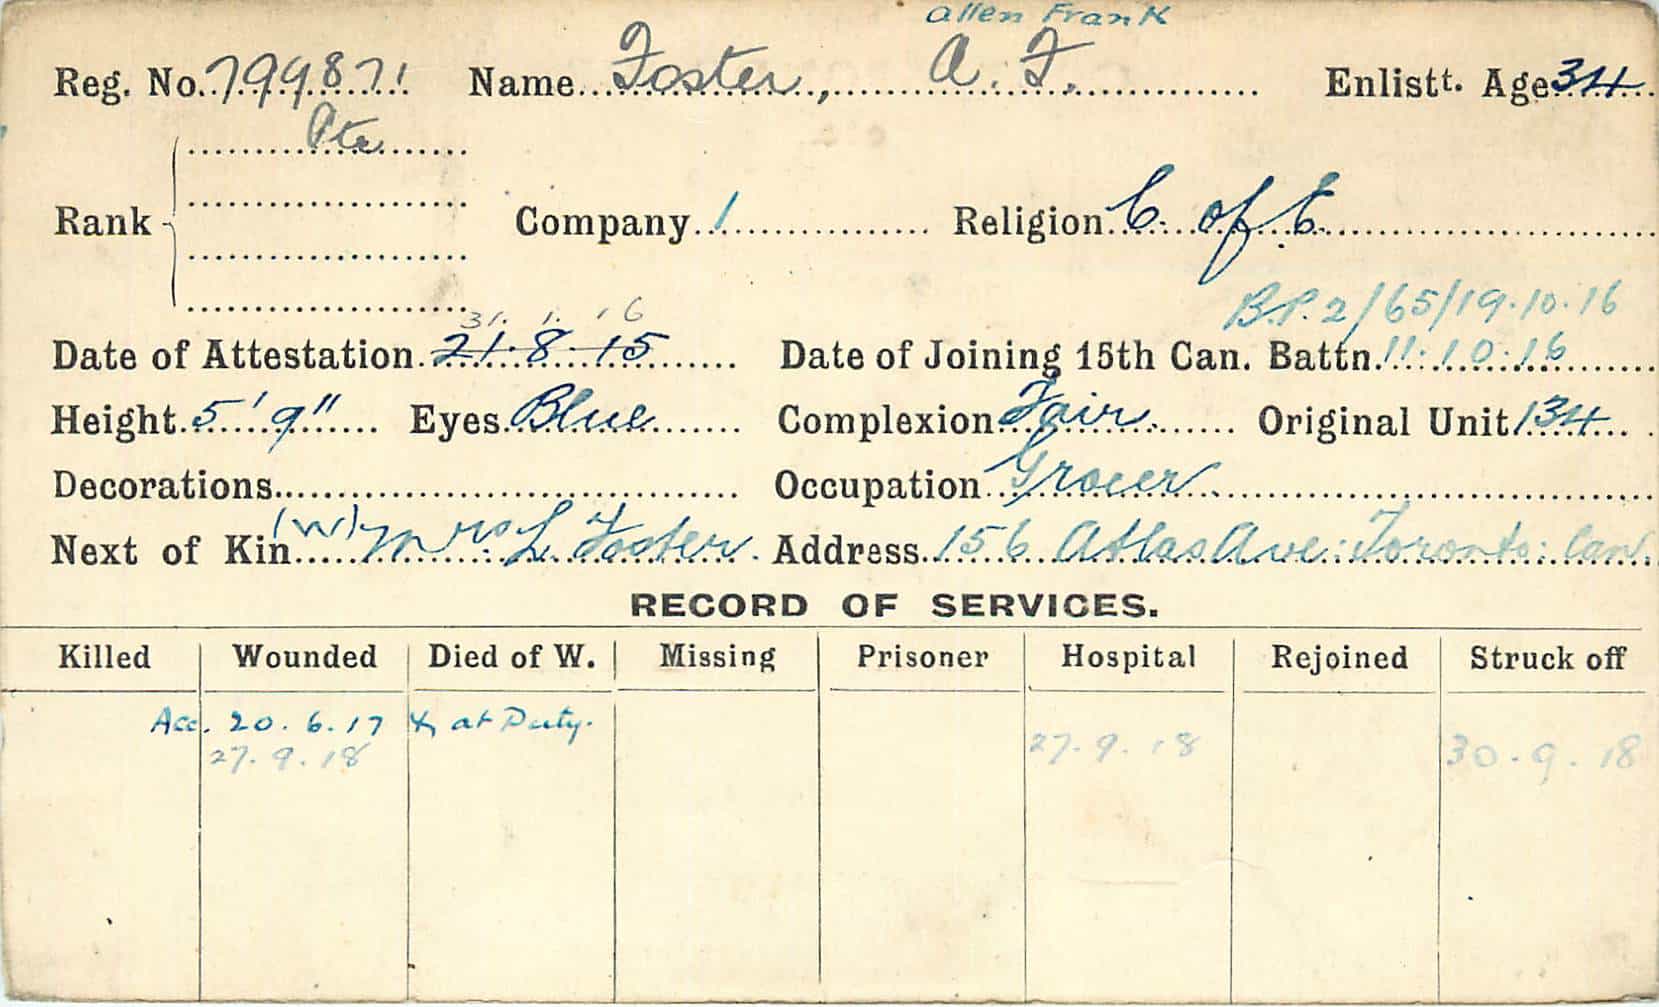 Allen Frank
Reg. No. 799871 Name Foster, A. F. Enlistt. Age 34
Pte
Rank Company 1 Religion C. of E.
B.P.2/65/19.10.16
31. 1. 16
Date of Attestation 21.8.15 Date of Joining 15th Can. Battn. 11.10.16
Height 5'9" Eyes Blue Complexion Fair. Original Unit 134
Decorations Occupation Grocer
Next of Kin (W) Mrs. L Foster. Address 156 Atlas Ave: Toronto: Can.
RECORD OF SERVICES.
Killed Wounded Died of W. Missing Prisoner Hospital Rejoined Struck off
Acc. 20.6.17 & at Duty.
27.9.18 27.9.18 30.9.18